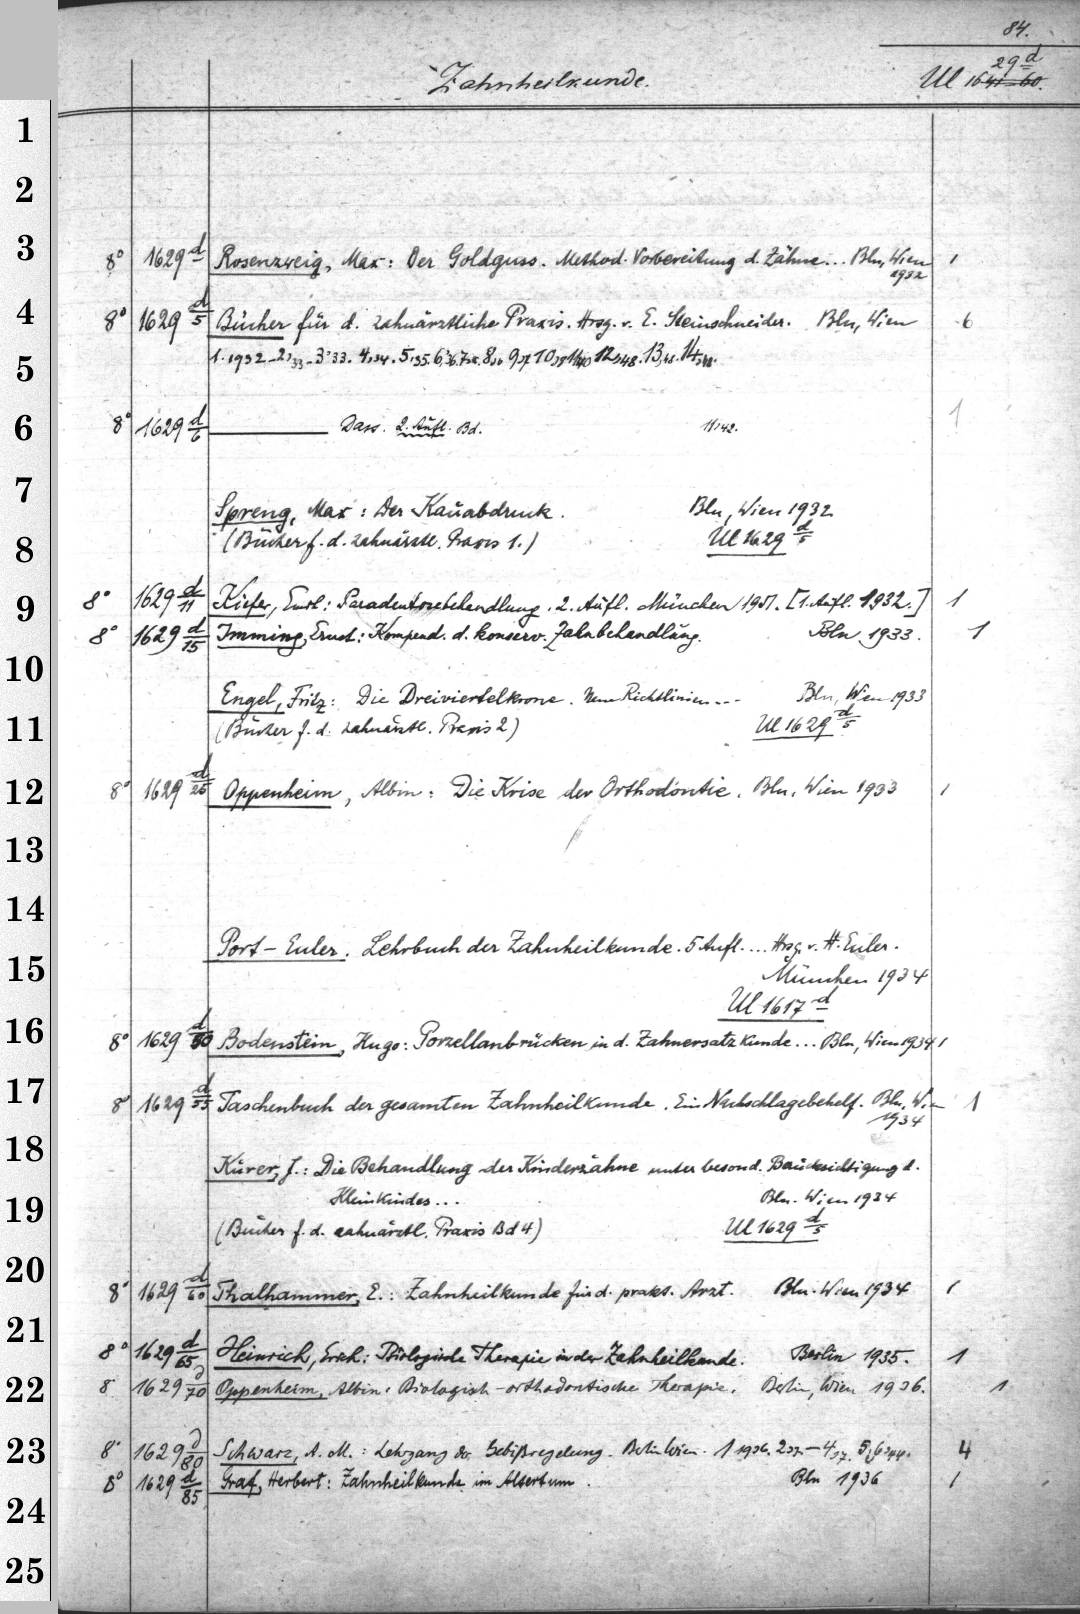 84.
Zahnheilkunde.
29 d
Ul 1641-60.
1
2
3
8° 1629 d Rosenzweig, Max: Der Goldguss. Method. Vorbereitung d. Zähne... Bln, Wien 1
1932
4
8° 1629 d/5 Bücher für d. zahnärztliche Praxis. Hrsg. v. E. Steinschneider. Bln, Wien 6
5
1. 1932
6
8° 1629 d/6 Dass. 2. Aufl. Bd. 11,42. 1
7
Spreng, Max: Der Kauabdruck. Bln, Wien 1932
8
(Bücher f. d. zahnärztl. Praxis 1.) Ul 1629 d/5
9
8° 1629 d/11 Kiefer, Emil: Paradentosebehandlung. 2. Aufl. München [1. Aufl. 1932.] 1
8° 1629 d/15 Imming, Ernst: Kompend. d. konserv. Zahnbehandlung. Bln 1933. 1
10
Engel, Fritz: Die Dreiviertelkrone. Neue Richtlinien... Bln, Wien 1933
11
(Bücher f. d. zahnärztl. Praxis 2) Ul 1629 d/5
12
8° 1629 d/25 Oppenheim, Albin: Die Krise der Orthodontie. Bln, Wien 1933 1
13
14
Port-Euler. Lehrbuch der Zahnheilkunde. 5 Aufl.... Hrsg. v. H. Euler.
15
München 1934
Ul 1617 d
16
8° 1629 d/50 Bodenstein, Hugo: Porzellanbrücken in d. Zahnersatzkunde... Bln, Wien 1934 1
17
8° 1629 d/55 Taschenbuch der gesamten Zahnheilkunde. Ein Nachschlagebehelf. Bln, Wien 1
1934
18
Kürer, J.: Die Behandlung der Kinderzähne unter besond. Berücksichtigung d.
Kleinkindes... Bln. Wien 1934
19
(Bücher f. d. zahnärztl. Praxis Bd 4) Ul 1629 d/5
20
8° 1629 d/60 Thalhammer, E.: Zahnheilkunde für d. prakt. Arzt. Bln. Wien 1934 1
21
8° 1629 d/65 Heinrich, Erich: Biologische Therapie in der Zahnheilkunde. Berlin 1935. 1
22
8° 1629 d/70 Oppenheim, Albin: Biologisch-orthodontische Therapie. Berlin, Wien 1936. 1
23
8° 1629 d/80 Schwarz, A. M.: Lehrgang der Gebißregelung. Berlin Wien. 1 1936. 2,37-4,37. 4
8° 1629 d/85 Graf, Herbert: Zahnheilkunde im Altertum. Bln 1936 1
24
25